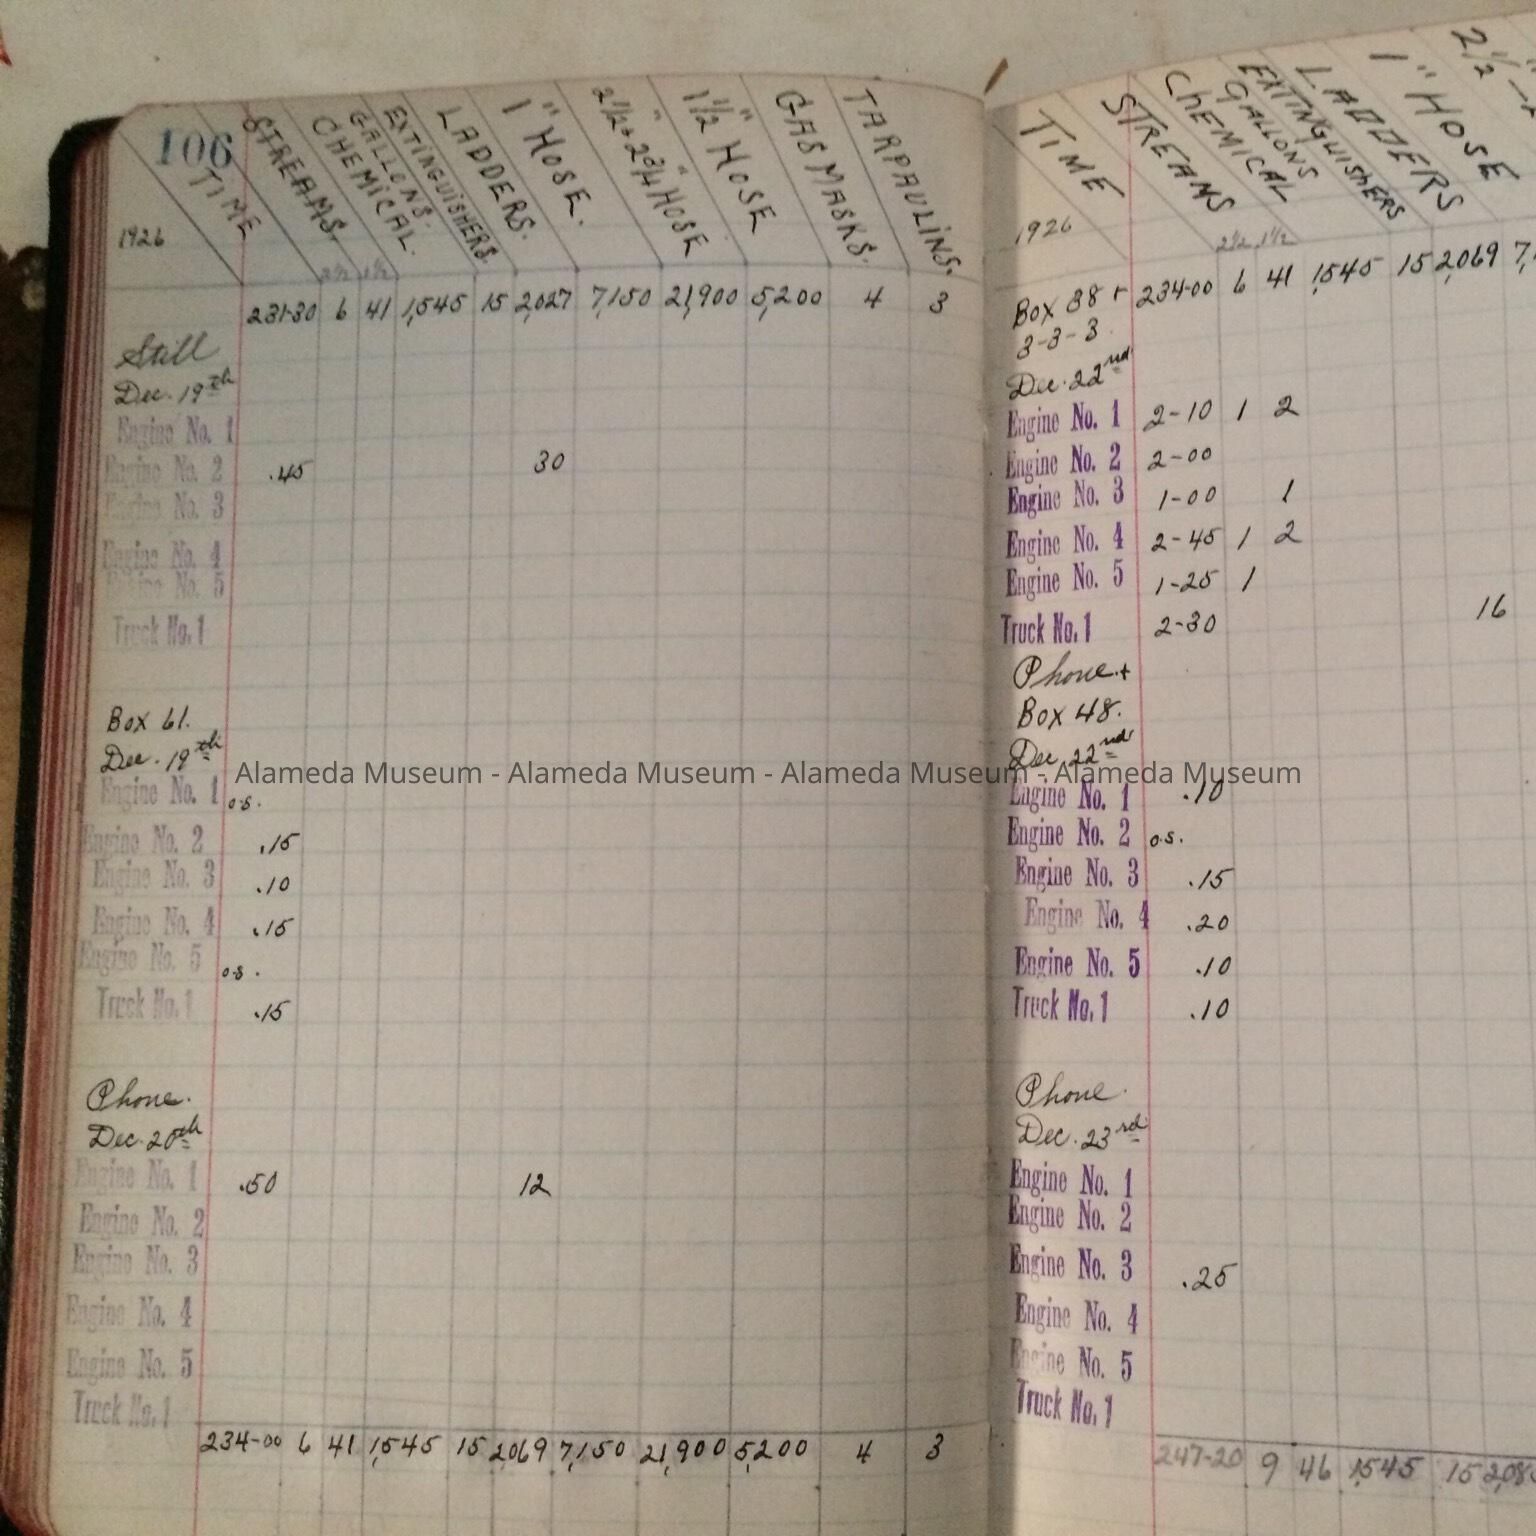 106
TIME
STREAMS.
GALLONS.
CHEMICAL.
EXTINGUISHERS.
LADDERS.
1" HOSE.
2 1/2 + 2 3/4" HOSE
1 1/2" HOSE
GAS MASKS.
TARPAULINS.
1926
2 1/2 1 1/2
231-30 6 41 1,545 15 2,027 7,150 21,900 5,200 4 3
Still
Dec. 19th
Engine No. 1
Engine No. 2 .45 30
Engine No. 3
Engine No. 4
Engine No. 5
Truck No. 1
Box 61.
Dec. 19th
Engine No. 1 o.s.
Engine No. 2 .15
Engine No. 3 .10
Engine No. 4 .15
Engine No. 5 o.s.
Truck No. 1 .15
Phone.
Dec. 20th
Engine No. 1 .50 12
Engine No. 2
Engine No. 3
Engine No. 4
Engine No. 5
Truck No. 1
234-00 6 41 1,545 15 2069 7,150 21,900 5,200 4 3
TIME
STREAMS
GALLONS
CHEMICAL
EXTINGUISHERS
LADDERS
1" HOSE
2 1/2
1926
2 1/2 1 1/2
Box 38 + 234-00 6 41 1,545 15 2,069 7,
3-3-3
Dec. 22nd
Engine No. 1 2-10 1 2
Engine No. 2 2-00
Engine No. 3 1-00 1
Engine No. 4 2-45 1 2
Engine No. 5 1-25 1
Truck No. 1 2-30 16
Phone +
Box 48.
Dec. 22nd
Engine No. 1 .10
Engine No. 2 o.s.
Engine No. 3 .15
Engine No. 4 .20
Engine No. 5 .10
Truck No. 1 .10
Phone.
Dec. 23rd
Engine No. 1
Engine No. 2
Engine No. 3 .25
Engine No. 4
Engine No. 5
Truck No. 1
247-20 9 46 1,545 15 2,08
Alameda Museum - Alameda Museum - Alameda Museum - Alameda Museum